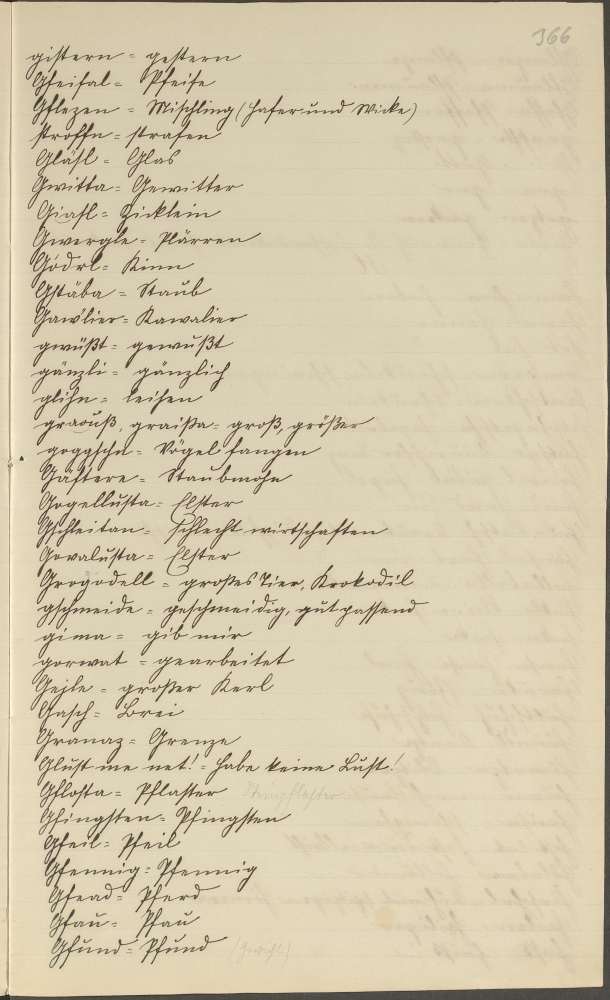 366
gistern = gestern
Gfeifal = Pfeife
Gflezen = Mischling (Hafer und Wicke)
stroffn = strafen
Gläsl = Glas
Gwitta = Gewitter
Giasl = Zicklein
Gwergle = Plärren
Gödrl = Kinn
Gstäba = Staub
Gawlier = Kawalier
gewüßt = gewußt
gänzli = gänzlich
glihn = leihen
graouß, graißa = groß, größer
goggschn = Vögel fangen
Gäftere = Staubmohn
Gogellusta = Elster
Gschleitan = schlecht wirtschaften
Govalusta = Elster
Grogodell = großes Tier, Krokodil
gschmeide = geschmeidig, gut passend
gima = gib mir
gorwat = gearbeitet
Gejle = großer Kerl
Gasch = Brei
Granaz = Grenze
Glust me net! = Habe keine Lust!
Gflosta = Pflaster
Gfingsten = Pfingsten
Gfeil = Pfeil
Gfennig = Pfennig
Gfead = Pferd
Gfau = Pfau
Gfund = Pfund (Gewicht)